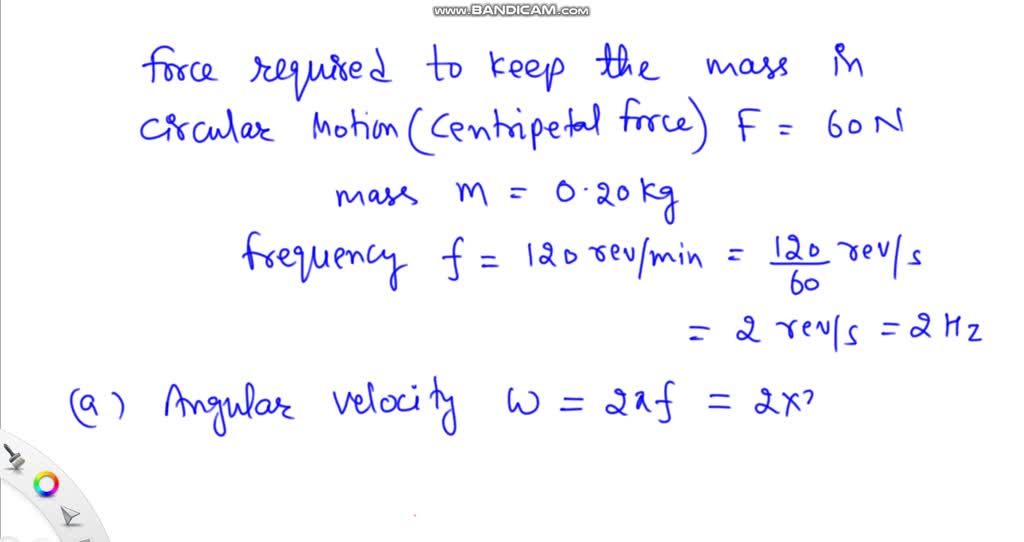 www.BANDICAM.com
force required to keep the mass in
circular Motion (Centripetal force) F = 60 N
mass m = 0.20 kg
frequency f = 120 rev/min = 120/60 rev/s
= 2 rev/s = 2 Hz
(a) Angular velocity ω = 2πf = 2×